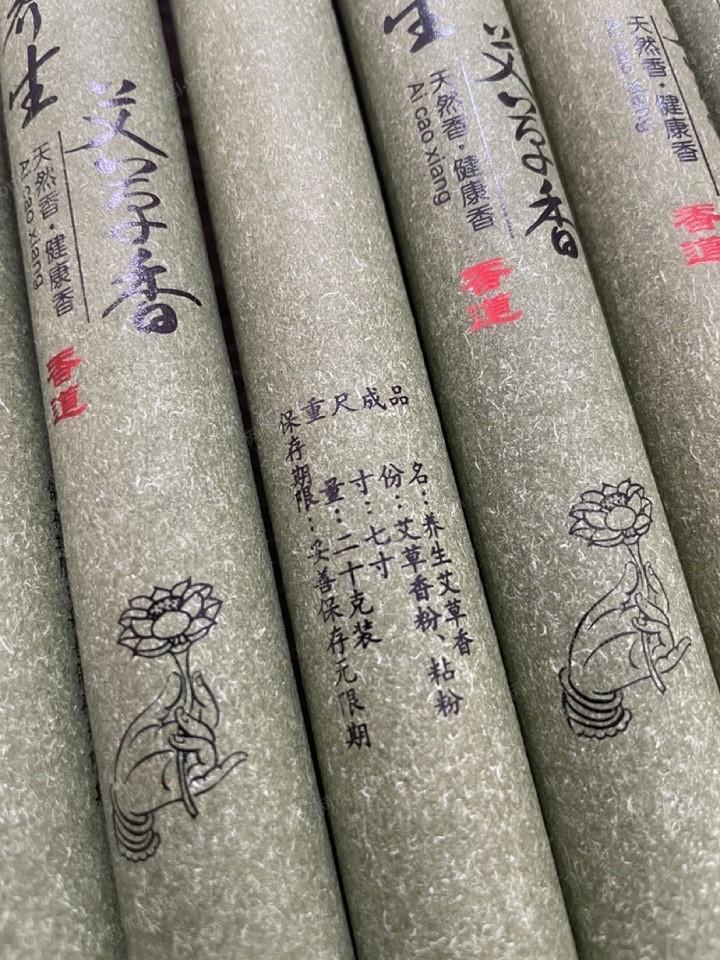 养生
艾草香
天然香·健康香
Ai cao xiang
香道
品名：养生艾草香
成份：艾草香粉、粘粉
尺寸：七寸
重量：二十克装
保存期限：妥善保存无限期
生
艾草香
天然香·健康香
Ai cao xiang
香道
天然香·健康香
Ai cao xiang
香道